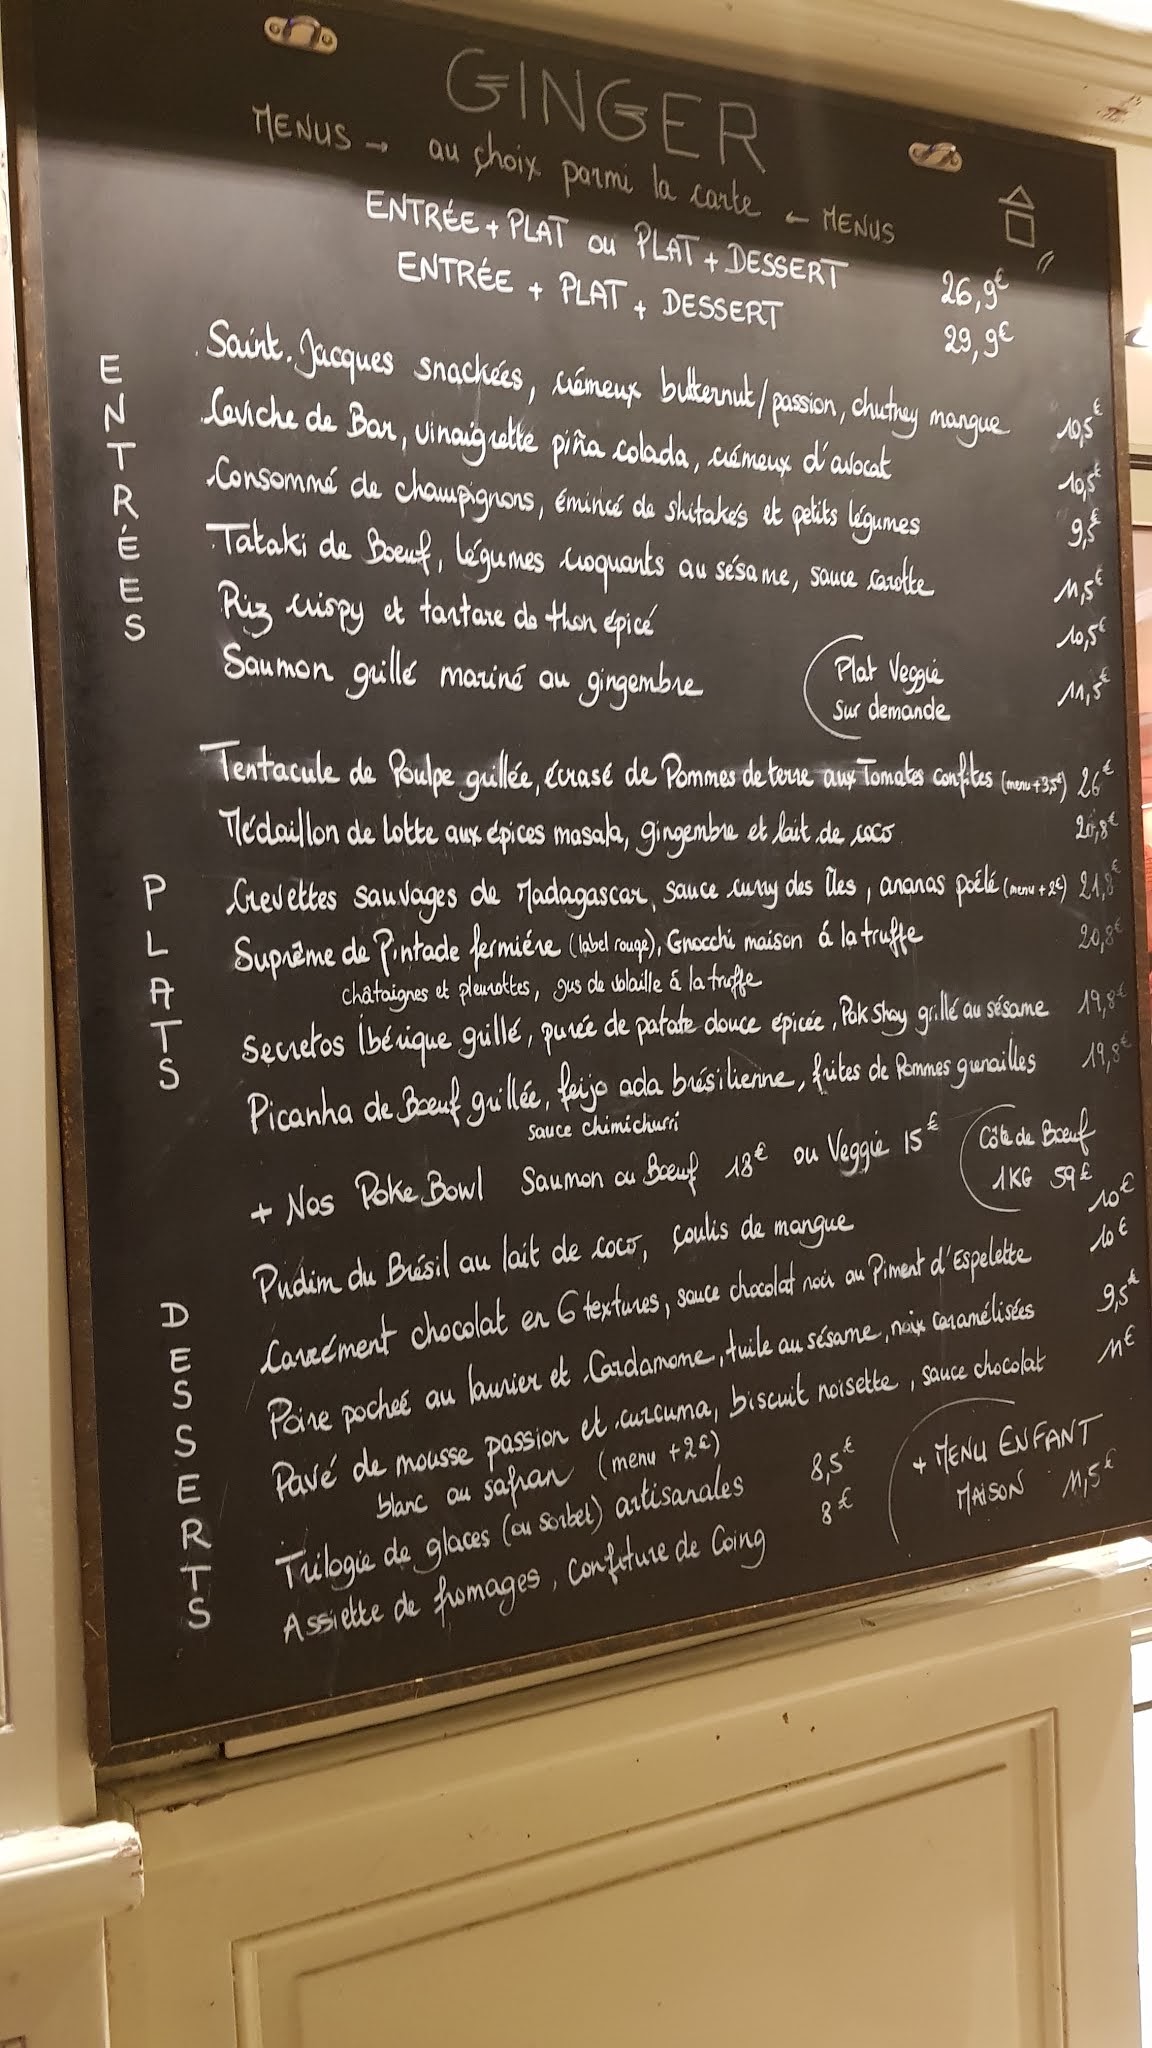 GINGER
MENUS → au choix parmi la carte ← MENUS
ENTRÉE + PLAT ou PLAT + DESSERT 26,9€
ENTRÉE + PLAT + DESSERT 29,9€
ENTRÉES
Saint-Jacques snackées, crémeux butternut/passion, chutney mangue 10,5€
Ceviche de Bar, vinaigrette piña colada, crémeux d'avocat 10,5€
Consommé de champignons, émincé de shitakés et petits légumes 9,5€
Tataki de Boeuf, légumes croquants au sésame, sauce carotte 11,5€
Riz crispy et tartare de thon épicé 10,5€
Saumon grillé mariné au gingembre 11,5€
Plat Veggie
Sur demande
PLATS
Tentacule de Poulpe grillée, écrasé de Pommes de terre aux Tomates confites (menu +3,5€) 26€
Médaillon de lotte aux épices masala, gingembre et lait de coco 20,8€
Crevettes sauvages de Madagascar, sauce curry des îles, ananas poêlé (menu +2€) 21,8€
Suprême de Pintade fermière (label rouge), Gnocchi maison á la truffe 20,8€
châtaignes et pleurottes, jus de volaille á la truffe
Secretos Ibérique grillé, purée de patate douce épicée, Pak Shoy grillé au sésame 19,8€
Picanha de Boeuf grillée, feijoada brésilienne, frites de Pommes grenailles 19,8€
sauce chimichurri
+ Nos Poke Bowl Saumon ou Boeuf 18€ ou Veggie 15€
Côte de Boeuf
1KG 59€
DESSERTS
Pudim du Brésil au lait de coco, coulis de mangue 10€
Carrément chocolat en 6 textures, sauce chocolat noir au Piment d'Espelette 10€
Poire pocheé au laurier et Cardamome, tuile au sésame, noix caramélisées 9,5€
Pavé de mousse passion et curcuma, biscuit noisette, sauce chocolat 11€
blanc au safran (menu +2€)
Trilogie de glaces (ou sorbet) artisanales 8,5€
Assiette de fromages, confiture de Coing 8€
+ MENU ENFANT
MAISON 11,5€